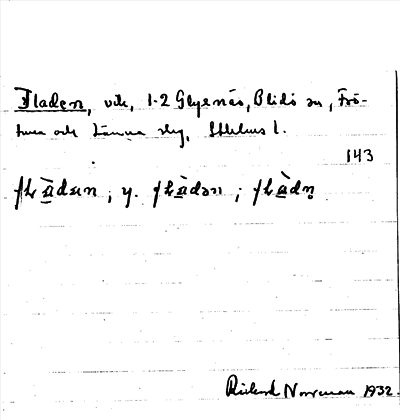 Fladen, vik, 1-2 Glyxnäs, Blidö sn, Frö-
tuna och Länna skg, Sthlms l.
143
flàdan, y. flàdən; flàdn̥
Rickard Norrman 1932.